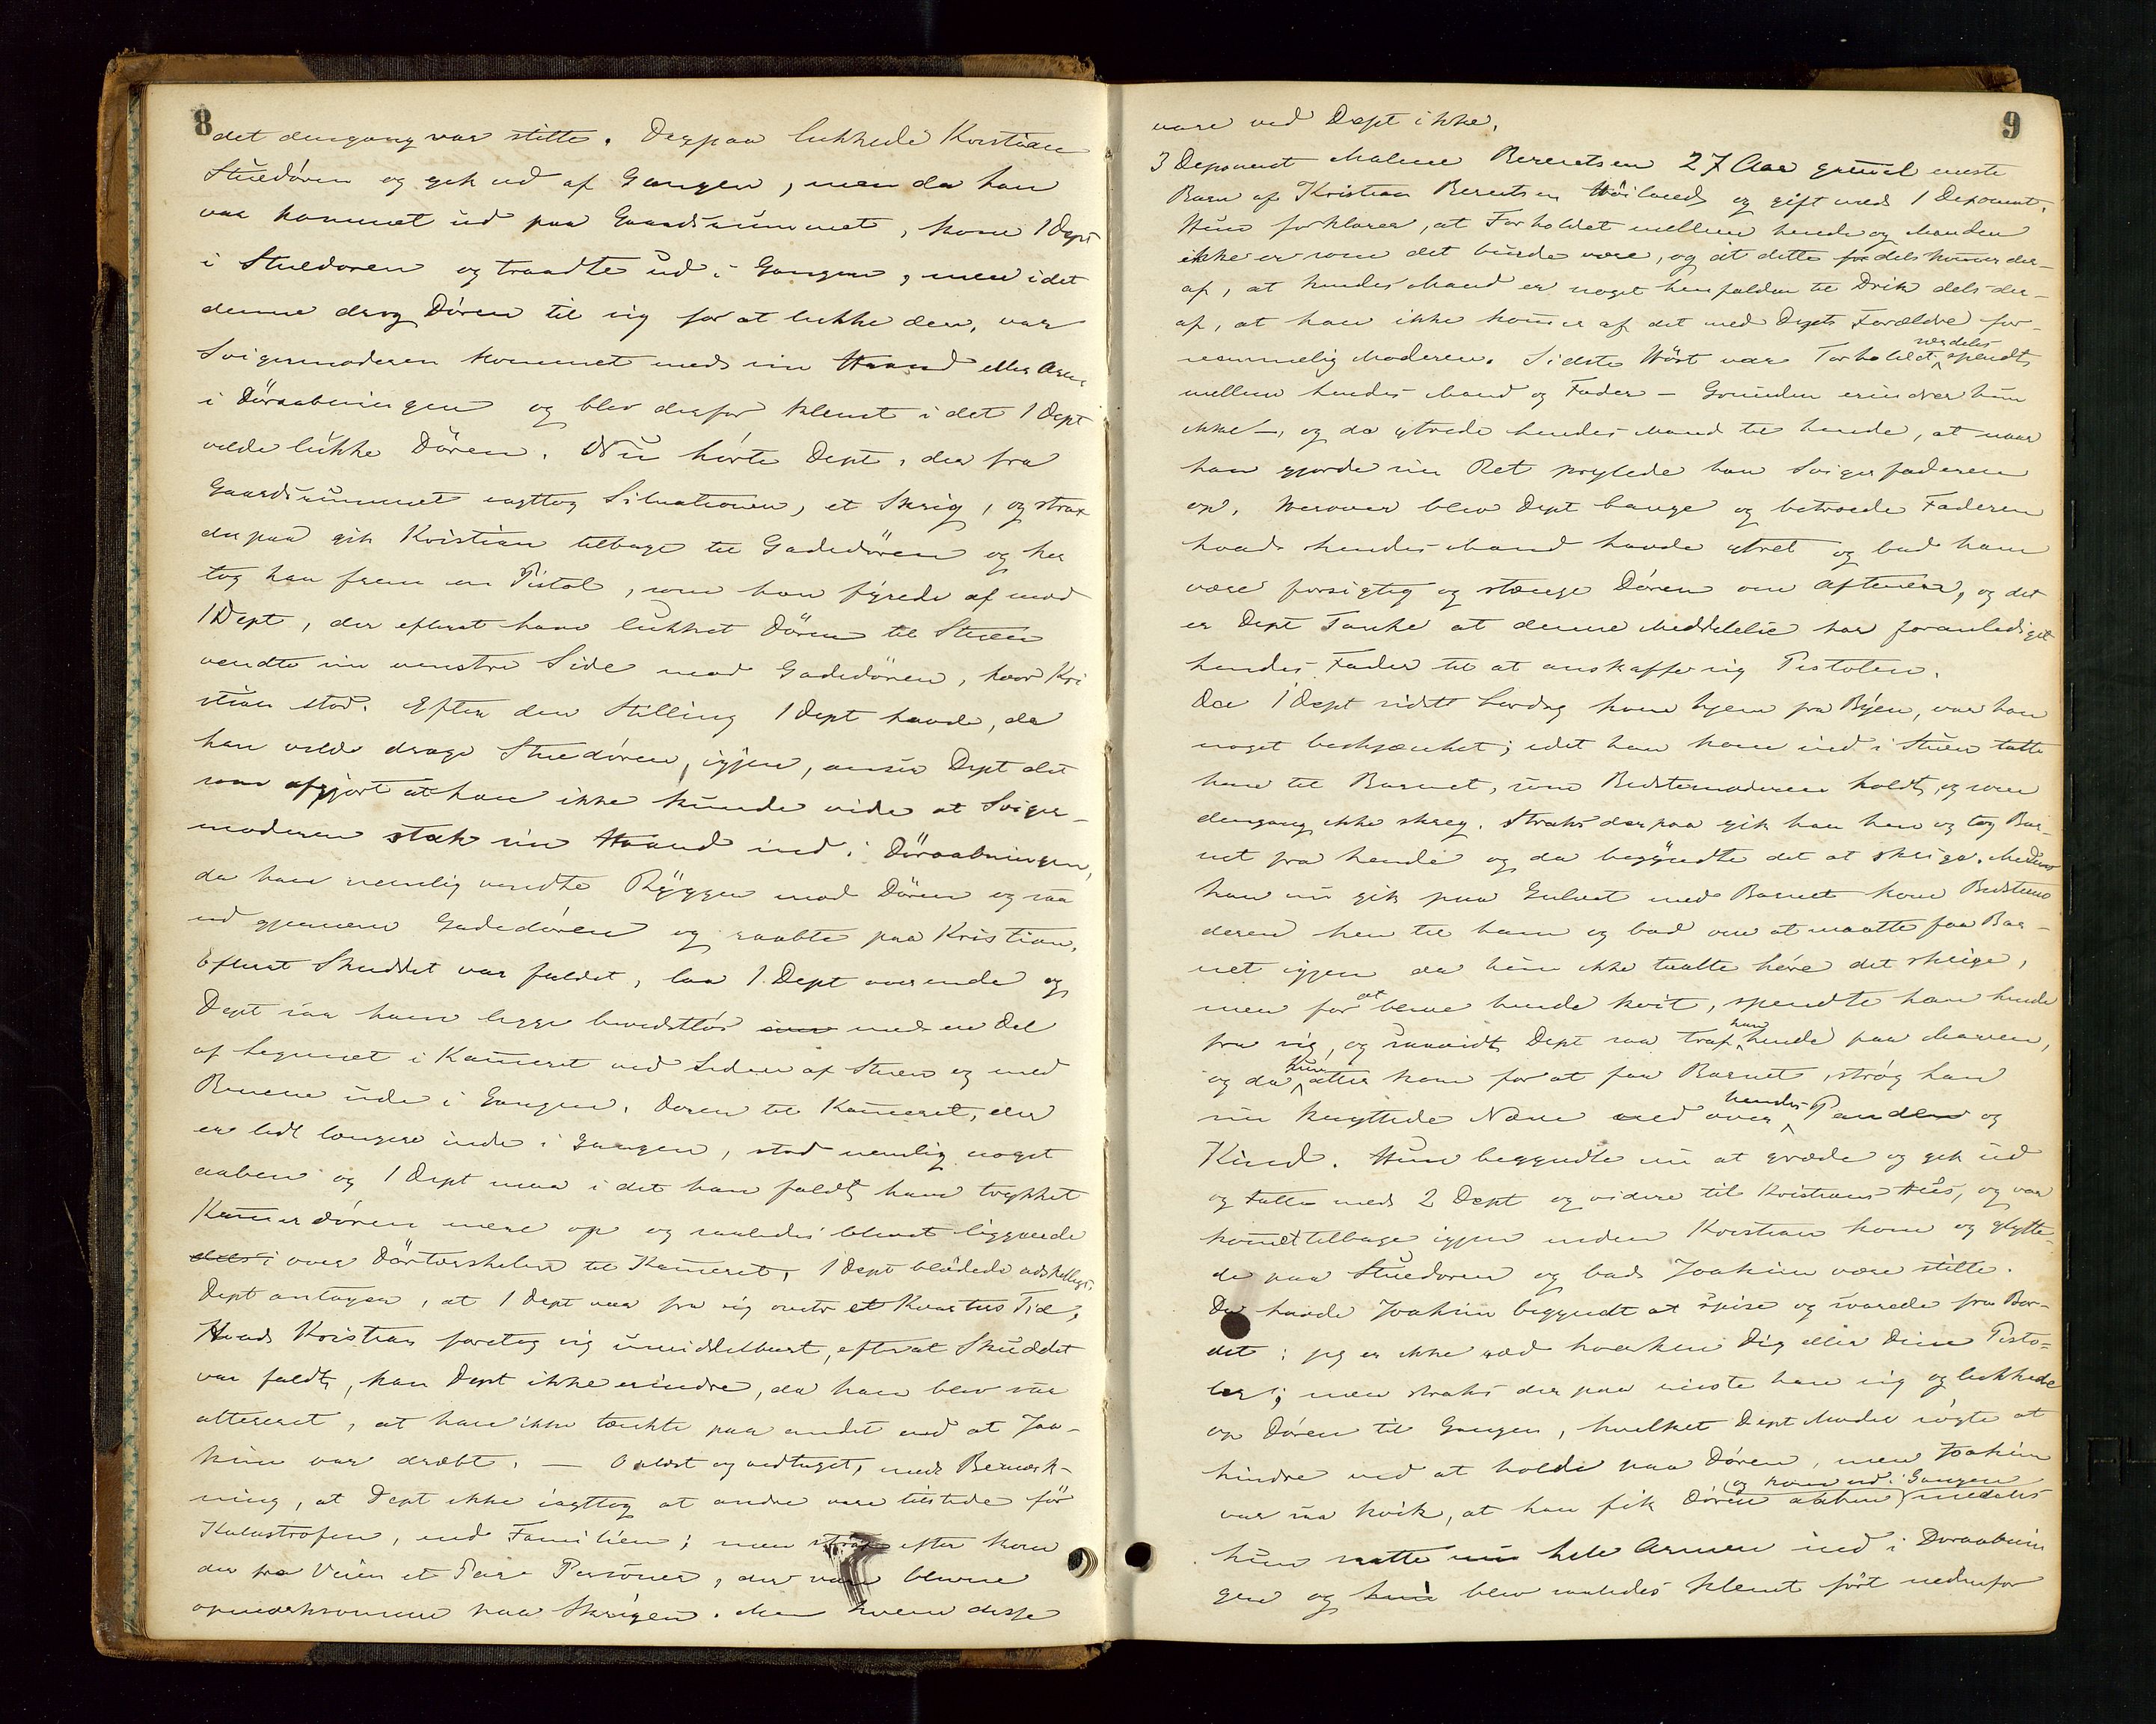 8
det dengang var stille. Derpaa lukkede Kristian
Stuedören og gik ud af Gangen, men da han
var kommet ud paa Gaardsrummet, kom 1 Dept
i Stuedøren og traadte ud i Gangen, men idet
denne drog Dören til sig for at lukke den, var
Svigermoderen kommet med sin Haand eller Arm
i Döraabningen og blev derfor klemt idet 1 Dept
vilde lukke Dören. Nu hörte Dept, der fra
Gaardsrummet iagttog Situationen, et Skrig, og strax
derpaa gik Kristian tilbage til Gadedören og her
tog han frem en Pistol, som han fyrede af mod
1 Dept, der efterat have lukket Dören til Stuen
vendte sin venstre Side mod Gadedören, hvor Kri
stian stod. Efter den Stilling 1 Dept havde, da
han vilde drage Stuedören igjen, anser Dept det
som afgjort at han ikke kunde vide at Sviger-
moderen stak sin Haand ind i Döraabningen,
da han nemlig vendte Ryggen mod Dören og saa
ud gjennem Gadedören og raabte paa Kristian.
Efterat Skuddet var faldet, laa 1 Dept overende og
Dept saa ham ligge bevidstlös med en Del
af Legemet i Kameret ved Siden af Stuen og med
Benene ude i Gangen. Døren til Kameret, der
er lidt længere inde i Gangen, stod nemlig noget
aaben og 1 Dept maa i det han faldt have trykket
Kamerdören mere op og saaledes blevet liggende
over Dörtærskelen til Kameret. 1 Dept blödede adskilligt.
Dept antager, at 1 Dept var fra sig omtr et Kvarters Tid.
Hvad Kristian foretog sig umiddelbart, efterat Skuddet
var faldt, kan Dept ikke erindre, da han blev saa
altereret, at han ikke tænkte paa andet end at Joa-
kim var dræbt. — Oplæst og vedtaget, med Bemærk-
ning, at Dept ikke iagttog at andre vare tilstede för
Katastrofen, end Familien; men strax efter kom
der fra Veien et Par Personer, der vare blevne
opmærksomme paa Skrigen. Men hvem disse
9
vare ved Dept ikke.
3 Deponent Malene Berentsen 27 Aar gammel eneste
Barn af Kristian Berentsen Höiland og gift med 1 Deponent.
Hun forklarer, at Forholdet mellem hende og Manden
ikke er som det burde være, og at dette dels kommer der-
af, at hendes Mand er noget henfalden til Drik dels der-
af, at han ikke kommer af det med Depts Forældre for-
nemmelig Moderen. Sidste Höst var Forholdet særdeles spendt
mellem hendes Mand og Fader — Grunden erindrer hun
ikke —, og da ytrede hendes Mand til hende, at naar
han gjorde sin Ret prylede han Svigerfaderen
op. Herover blev Dept bange og betroede Faderen
hvad hendes Mand havde ytret og bad ham
være forsigtig og stænge Dören om Aftenen, og det
er Dept Tanke at denne Meddelelse har foranlediget
hendes Fader til at anskaffe sig Pistolen.
Da 1 Dept sidste Lørdag kom hjem fra Byen, var han
noget beskjænket; idet han kom ind i Stuen talte
han til Barnet, som Bedstemoderen holdt, og som
dengang ikke skreg. Straks derpaa gik han hen og tog Bar-
net fra hende og da begyndte det at skrige. Medens
han nu gik paa Gulvet med Barnet kom Bedstemo
deren hen til ham og bad om at maatte faa Bar-
net igjen da hun ikke taalte höre det skrige,
men for at blive hende kvit, spendte han hende
fra sig, og saavidt Dept saa traf han hende paa Maven,
og da hun atter kom for at faa Barnet, strög han
sin knyttede Næve ned over hendes Panden og
Kind. Hun begyndte nu at græde og gik ud
og talte med 2 Dept og videre til Kristians Hus, og var
kommet tilbage igjen inden Kristian kom og glytte-
de paa Stuedøren og bad Joakim være stille.
Da havde Joakim begyndt at spise og svarede fra Bor-
det: jeg er ikke ræd hverken Dig eller Dine Pisto-
ler; men straks derpaa reiste han sig og lukkede
op Dören til Gangen, hvilket Dept Moder sögte at
hindre ved at holde paa Dören, men Joakim
var saa kvik, at han fik Dören aaben (og kom ud i Gangen) medens
hun satte sin hele Armen ind i Døraabnin
gen og hun blev saaledes klemt fört nedenfor